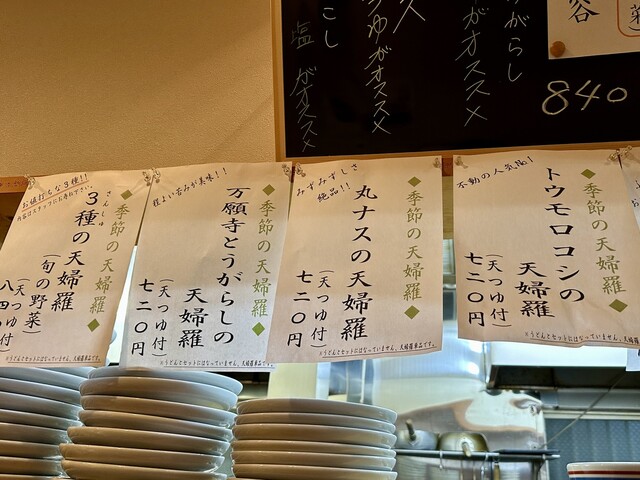 がらし
がオススメ
つゆがオススメ
こし
塩 がオススメ
840
不動の人気品!
◆季節の天婦羅◆
トウモロコシの
天婦羅
(天つゆ付)
七二〇円
※うどんとセットにはなっていません。天婦羅単品です。
みずみずしさ
絶品!!
◆季節の天婦羅◆
丸ナスの天婦羅
(天つゆ付)
七二〇円
※うどんとセットにはなっていません。天婦羅単品です。
程よい苦みが美味!!
◆季節の天婦羅◆
万願寺とうがらしの
天婦羅
(天つゆ付)
七二〇円
※うどんとセットにはなっていません。天婦羅単品です。
お値打ちな3種!!
内容はスタッフにお尋ね下さい。
◆季節の天婦羅◆
さんしゅ
3種の天婦羅
(旬の野菜)
(天つゆ付
八四
※うどんとセットにはなっていません。天婦羅単品です。